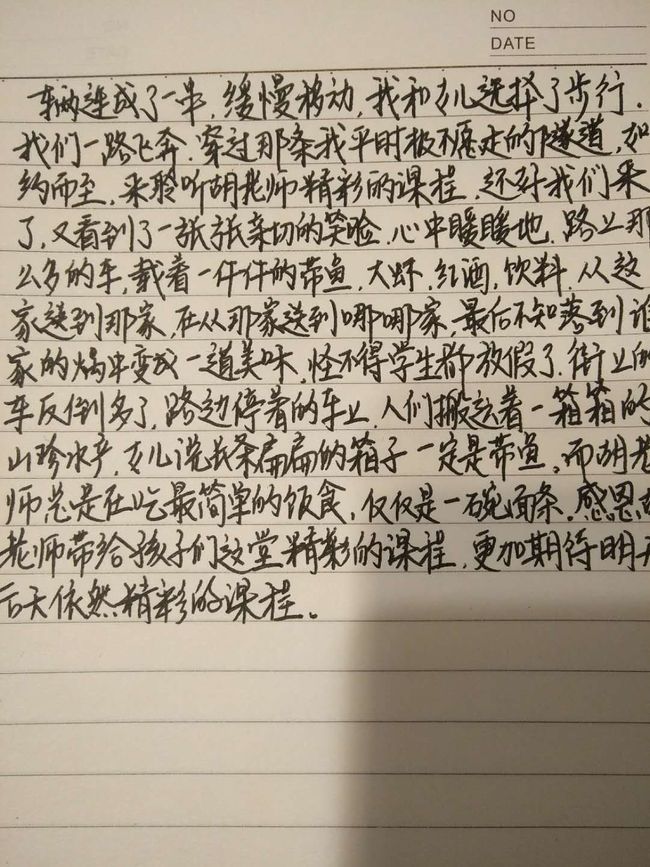 NO
DATE
车辆连成了一串，缓慢移动，我和女儿选择了步行．
我们一路飞奔．穿过那条我平时极不愿走的隧道，如
约而至．来聆听胡老师精彩的课程．还好我们来
了，又看到了一张张亲切的笑脸．心中暖暖地．路上那
么多的车，载着一件件的带鱼．大虾．红酒，饮料．从这
家送到那家，在从那家送到哪哪家，最后不知落到谁
家的锅中变成一道美味．怪不得学生都放假了．街上的
车反倒多了，路边停着的车上，人们搬运着一箱箱的
山珍水产，女儿说长条扁扁的箱子一定是带鱼．而胡老
师总是在吃最简单的饭食，仅仅是一碗面条．感恩胡
老师带给孩子们这堂精彩的课程．更加期待明天
后天依然精彩的课程。